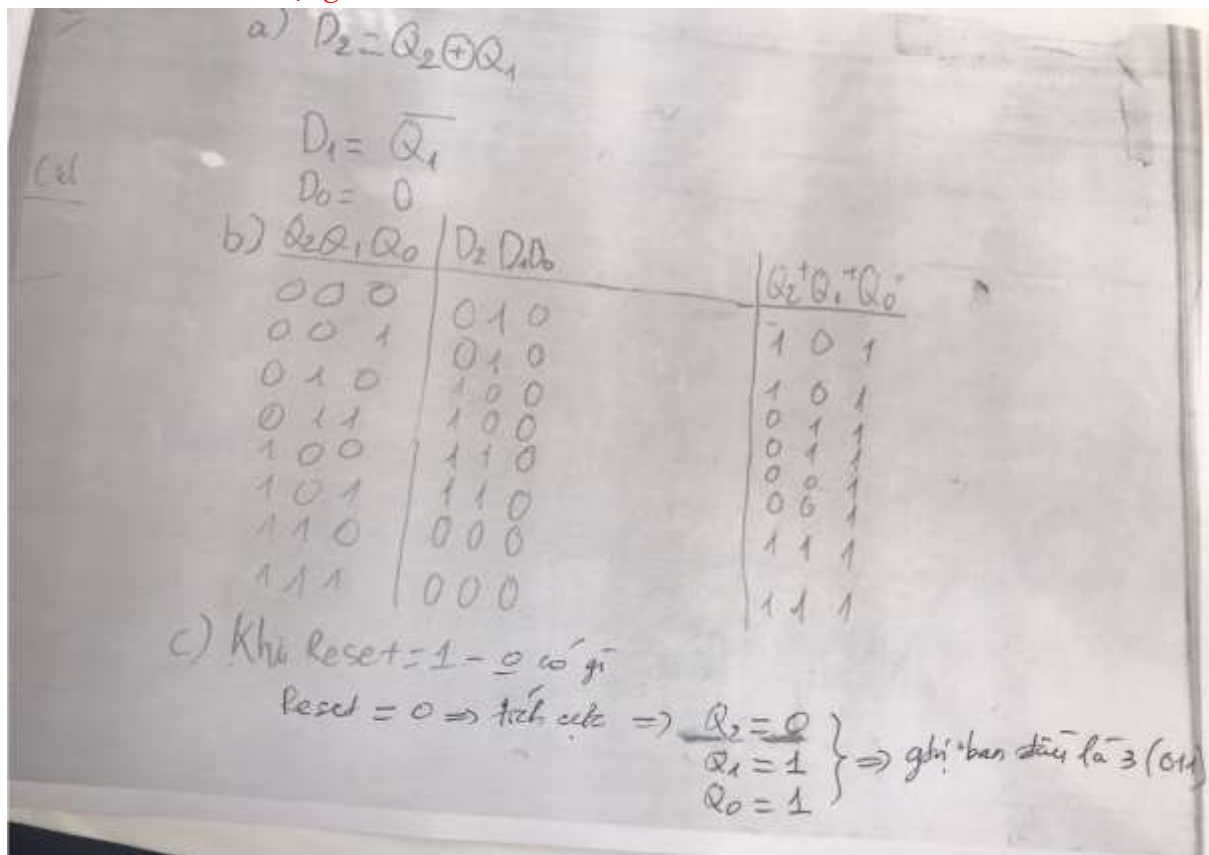 a) D₂ = Q₂⊕Q₁
D₁ = Q̅₁
D₀ = 0
b) Q₂Q₁Q₀ | D₂ D₁D₀ | Q₂⁺Q₁⁺Q₀⁺
000 | 010 | 101
001 | 010 | 101
010 | 100 | 011
011 | 100 | 011
100 | 110 | 001
101 | 110 | 001
110 | 000 | 111
111 | 000 | 111
c) Khi Reset = 1 - 0 có gì
Reset = 0 => tích cực => Q₂ = 0
Q₁ = 1 } => gtrị ban đầu là 3 (011)
Q₀ = 1